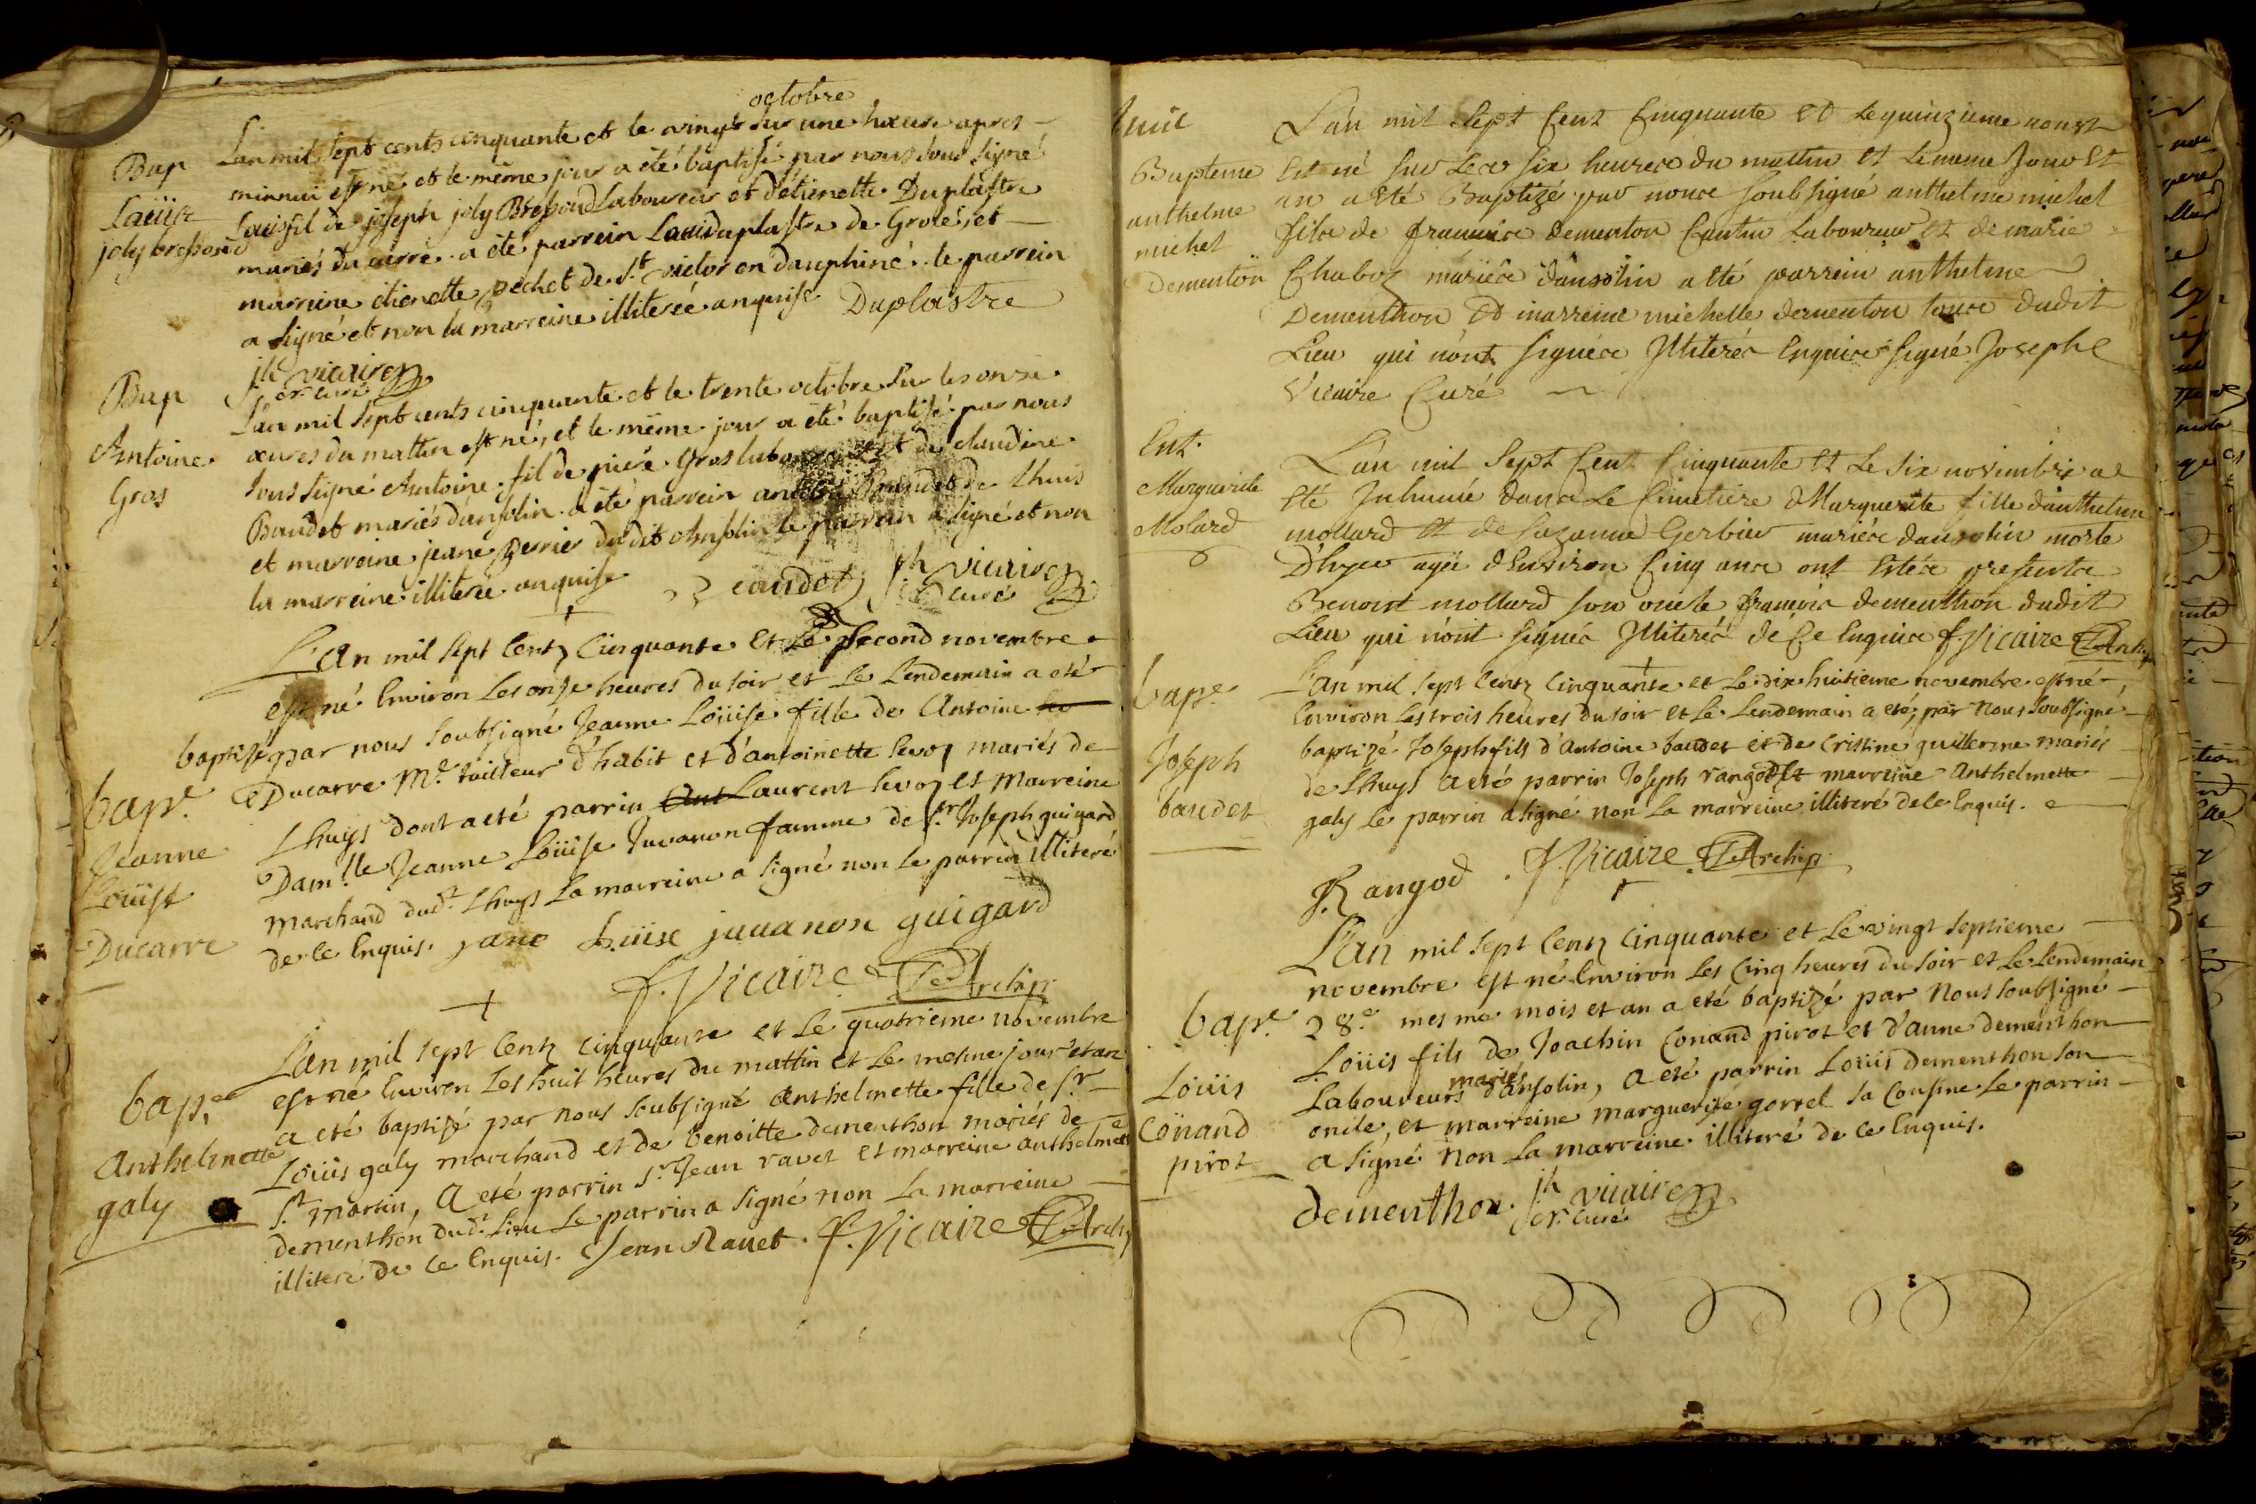 octobre
Bap
L'an mil sept cents cinquante et le vingt sur une hoeure apres
minuit est né et le même jour a été baptisé par nous sous signé
Laüise
joly bressoud
Louis fil de joseph joly Bressoud Laboureur et d'étienette Duplastre
mariés du a été parrein Laui Duplastre de Grolé, et
marreine étienette pechet de St victor en dauphiné. le parrein
a signé et non la marreine illiterée anquise Duplastre
jh vicaire
curé
Bap
Antoine
Gros
L'an mil sept cents cinquante et le trente octobre sur les onze
oeures du mattin est né, et le même jour a été baptisé par nous
sous signé Antoine fil de piere Gros et de claudine
Baudet mariés d'ansolin a été parrein de Lhuis
et marreine jeane perrier du dit Ansolin le parrein a signé et non
la marreine illiterée anquise Beaudet jh vicaire
curé
L'an mil sept Centz Cinquante et Le second novembre
est né Environ Les onze heures du soir et Le Lendemain a eté
baptisé par nous soubsigné Jeanne Loüise fille de Antoine
bapt.
Jeanne
Loüise
Ducarre
Ducarre Me tailleur d'habit et d'antoinette sevoz mariés de
Lhuys dont a eté parrin Laurent sevoz et marreine
Damlle Jeanne Loüise Juvanon famme de sr Joseph guigard
marchand dudt Lhuys La marreine a signé non Le parrin illiteré
de ce Enquis. jane Loüise juuanon guigard
J. Vicaire Archip
bapt.
Anthelmette
galy
L'an mil sept Centz cinquante et Le quatrieme novembre
est né Environ Les huit heures du mattin et Le mesme jour et an
a eté baptisé par nous soubsigné Anthelmette fille de sr
Loüis galy marchand et de benoitte dementhon mariés de
St martin, a eté parrin sr Jean ravet et marreine anthelmette
dementhon dudt Lieu Le parrin a signé non La marreine
illiteré de ce Enquis. Jean Ravet. J. Vicaire Archip
Bapteme
anthelme
michel
Dementon
L'an mil Sept Cent Cinquante Et Le quinzieme aoust
Est né sur Les six heures du mattin Et Le meme Jour Et
an a Eté Baptizé par nous soubsigné anthelme michel
fils de francois dementon Cantin Laboureur Et de marie
Chaboz mariés d'ansolin a Eté parrein anthelme
Dementhon Et marreine michelle dementon tous dudit
Lieu qui n'ont signées Illiterés Enquis signé Joseph
Vicaire Curé
Ent.
Marguerite
Molard
L'an mil Sept Cent Cinquante Et Le six novembre a
Eté Inhumée dans Le Cimetiere Marguerite fille d'anthelme
mollard Et de suzanne Gerbier mariés d'ansolin morte
D'hyer agée d'Environ Cinq ans ont Estés presents
Benoist mollard son oncle francois dementhon dudit
Lieu qui n'ont signés Illiterés de Ce Enquis J. Vicaire Archip
bapt.
Joseph
baudet
L'an mil sept Centz Cinquante et Le dix huitieme novembre est né
Environ Les trois heures du soir et Le Lendemain a eté, par Nous soubsigné
baptizé Joseph fils d'Antoine baudet et de Cristine guillerme mariés
de Lhuys a eté parrin Joseph rangod et marreine Anthelmette
galy Le parrin a signé non La marreine illiteré de ce Enquis.
Rangod. J. Vicaire. Archip
bapt.
Loüis
Conand
pirot
L'an mil sept Centz Cinquante et Le vingt septieme
novembre est né Environ Les Cinq heures du soir et Le Lendemain
28e mesme mois et an a eté baptizé par Nous soubsigné
Loüis fils de Joachin Conand pirot et d'anne dementhon
mariés
Laboureurs d'ansolin, a eté parrin Loüis dementhon son
oncle, et marreine marguerite gorrel sa Cousine Le parrin
a signé Non La marreine illiteré de ce Enquis.
dementhon. jh vicaire
curé